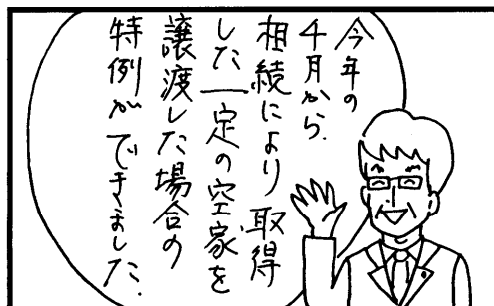 今年の
4月から、
相続により取得
した一定の空家を
譲渡した場合の
特例ができました.